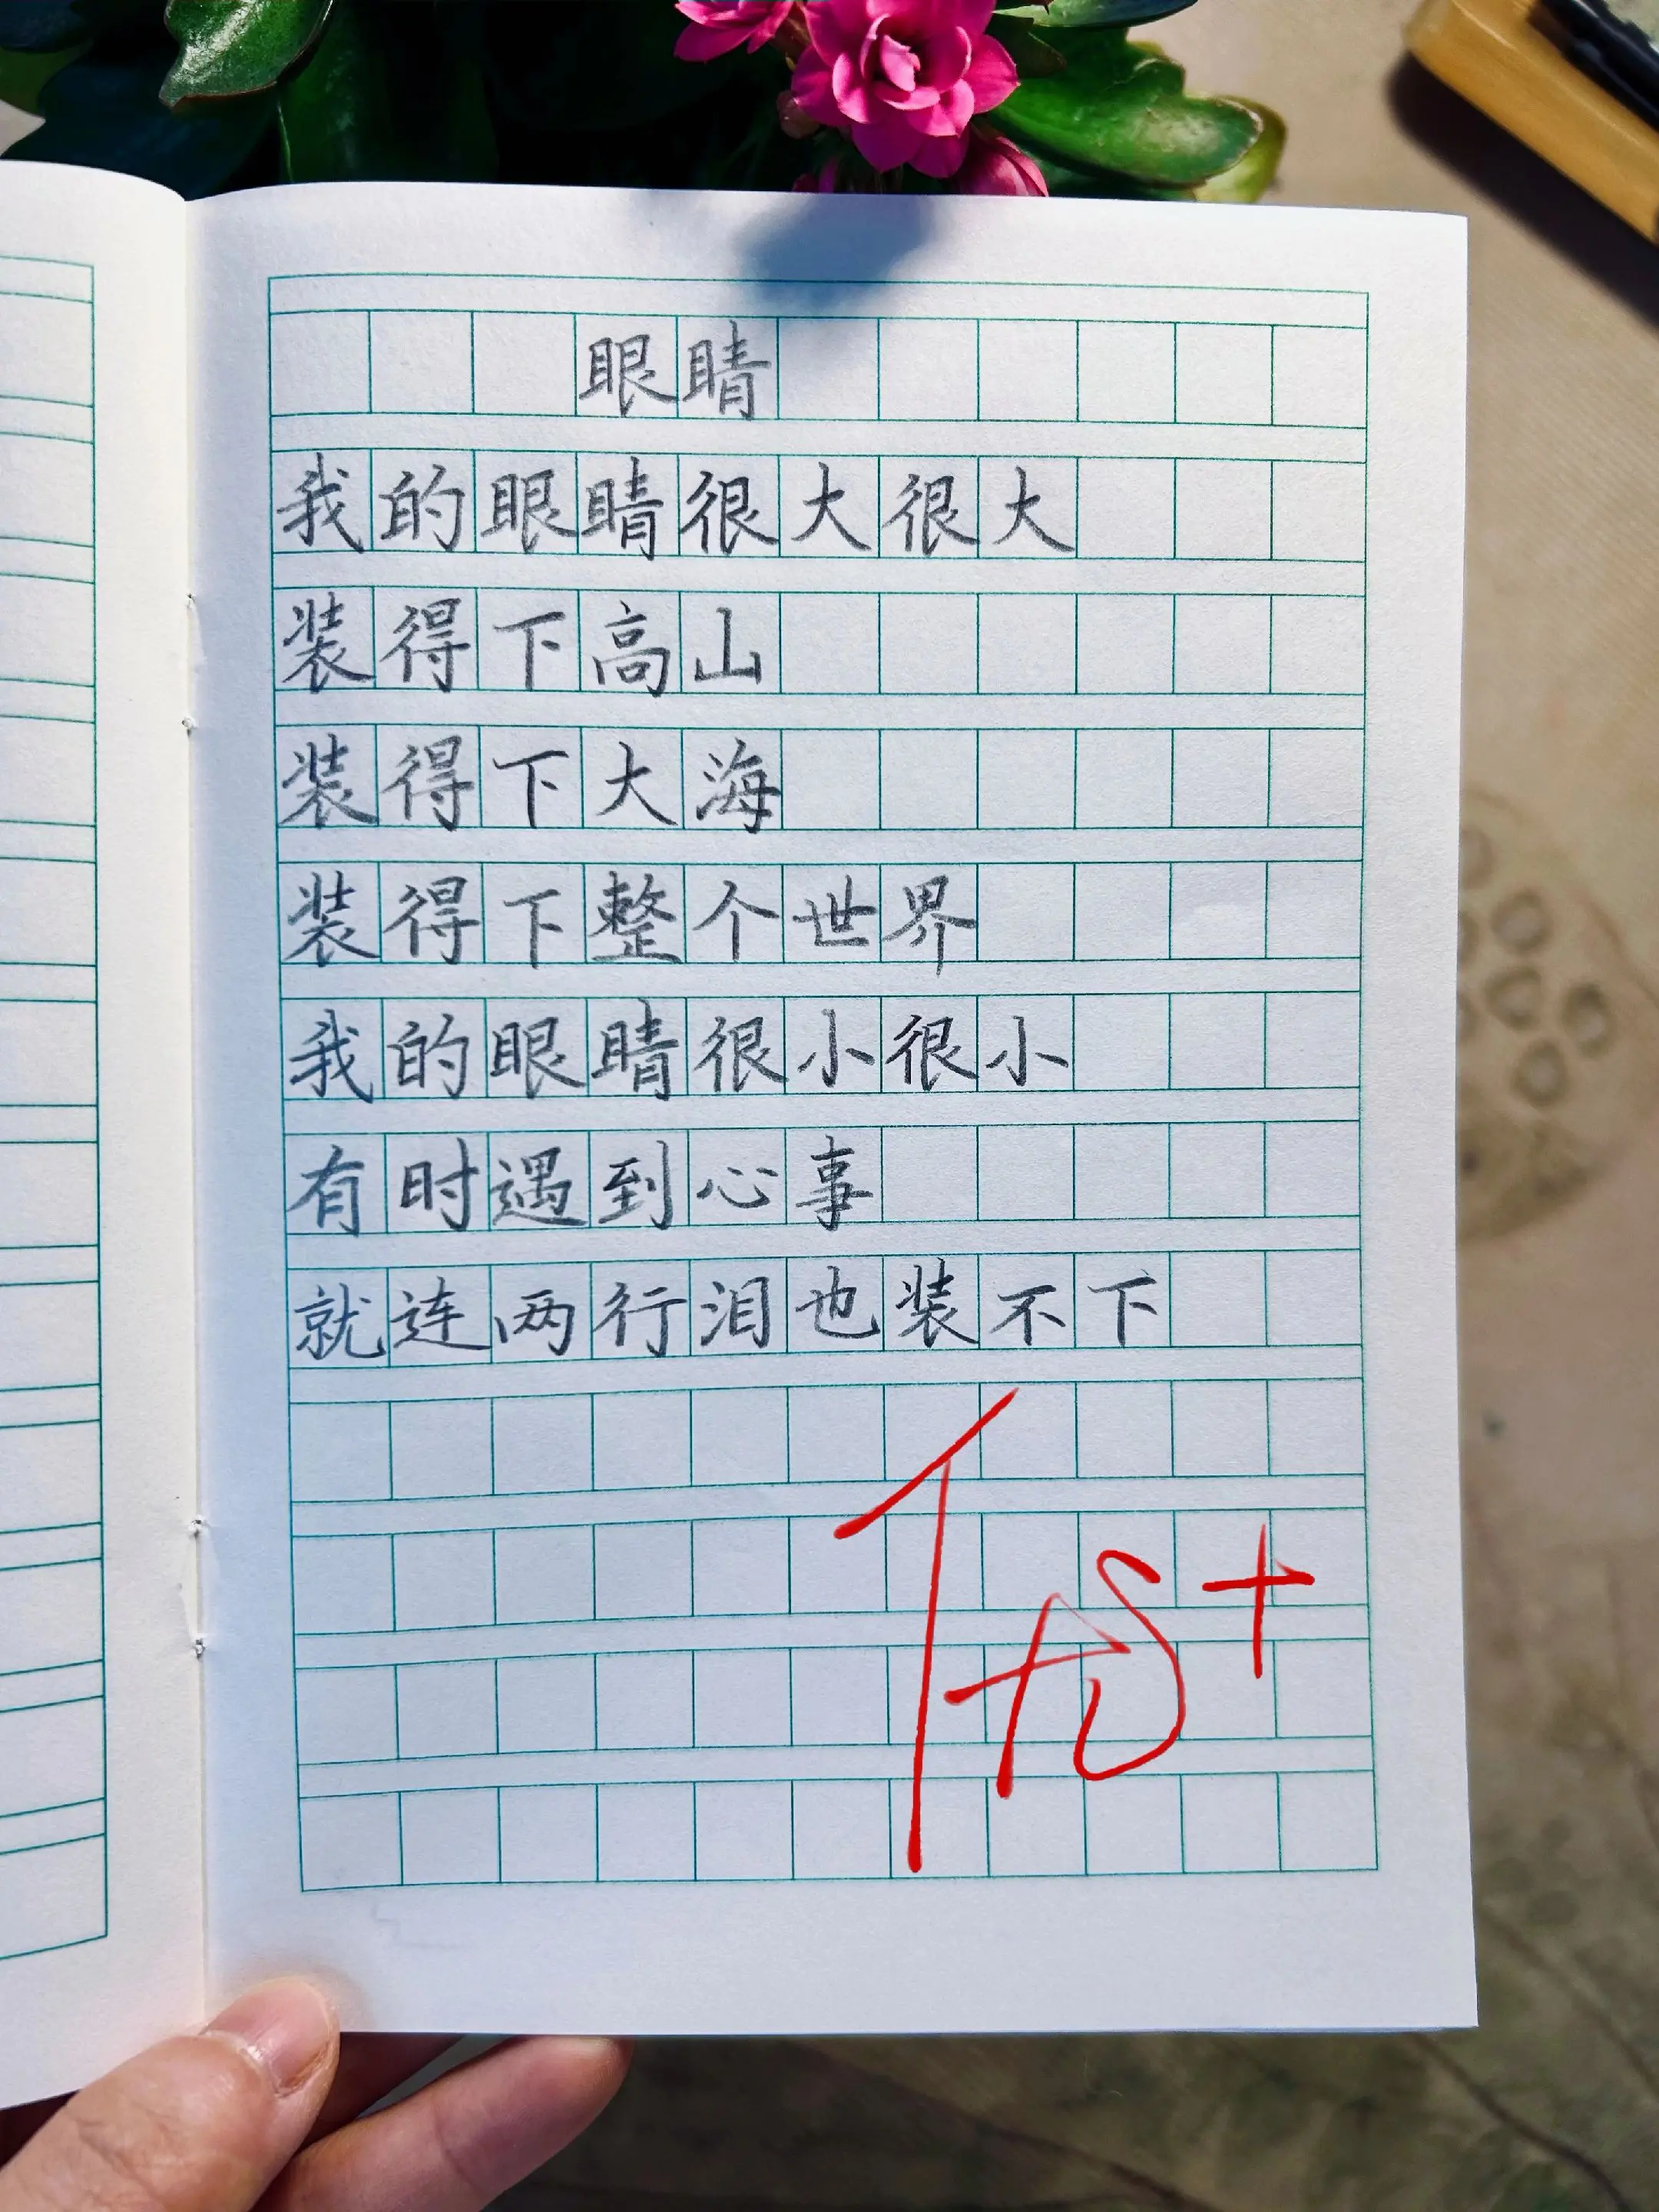 眼睛
我的眼睛很大很大
装得下高山
装得下大海
装得下整个世界
我的眼睛很小很小
有时遇到心事
就连两行泪也装不下